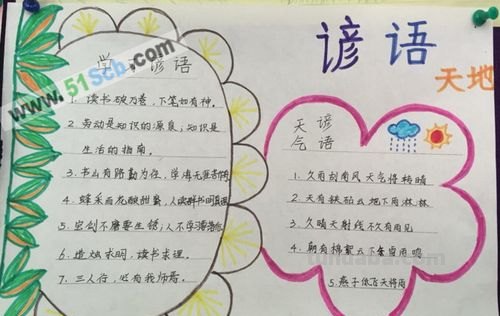 谚语
天地
www.51Scb.com
学习谚语
1. 读书破万卷,下笔如有神。
2. 劳动是知识的源泉;知识是
生活的指南。
3. 书山有路勤为径,学海无涯苦作舟
4. 蜂采百花酿甜蜜,人读群书明真理
5. 宝剑不磨要生锈;人不学习要落后
6. 造烛求明,读书求理。
7. 三人行,必有我师焉。
天气
谚语
1. 久雨刮南风天气将转晴
2. 天有铁砧云地下雨淋淋
3. 久晴天射线不久有雨见
4. 朝有棉絮云下午雷雨鸣
5. 燕子低飞天将雨
tundaba.com